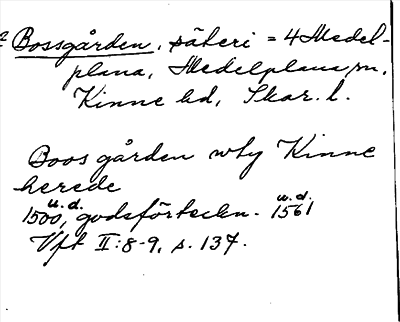 Bossgården, säteri = 4 Medel-
plana, Medelplana sn,
Kinne hd, Skar. l.
Boos gården wty Kinne
herede
u. d. u. d.
1500, godsförteckn. 1561
Vft II:8-9, s. 137.